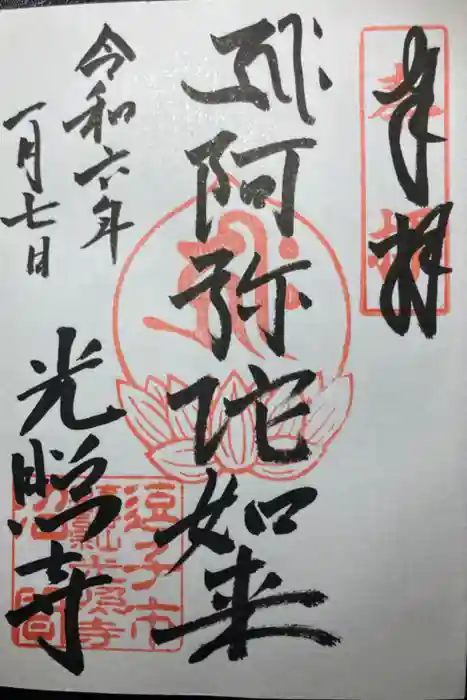 奉拝
奉拝
阿弥陀如来
令和六年
一月七日
光照寺
逗子市
沼間